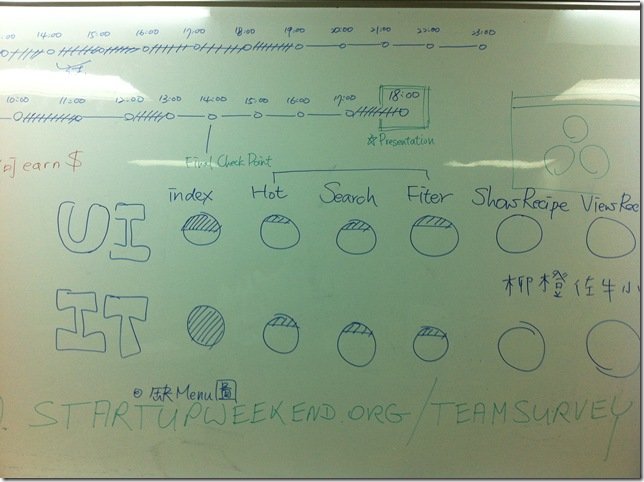 :00 14:00 15:00 16:00 17:00 18:00 19:00 20:00 21:00 22:00 23:00
10:00 11:00 12:00 13:00 14:00 15:00 16:00 17:00 18:00
☆Presentation
Final Check Point
earn $
index Hot Search Fiter ShowRecipe ViewRec
UI
柳橙佐牛小
IT
缺Menu圖
STARTUPWEEKEND.ORG/TEAMSURVEY